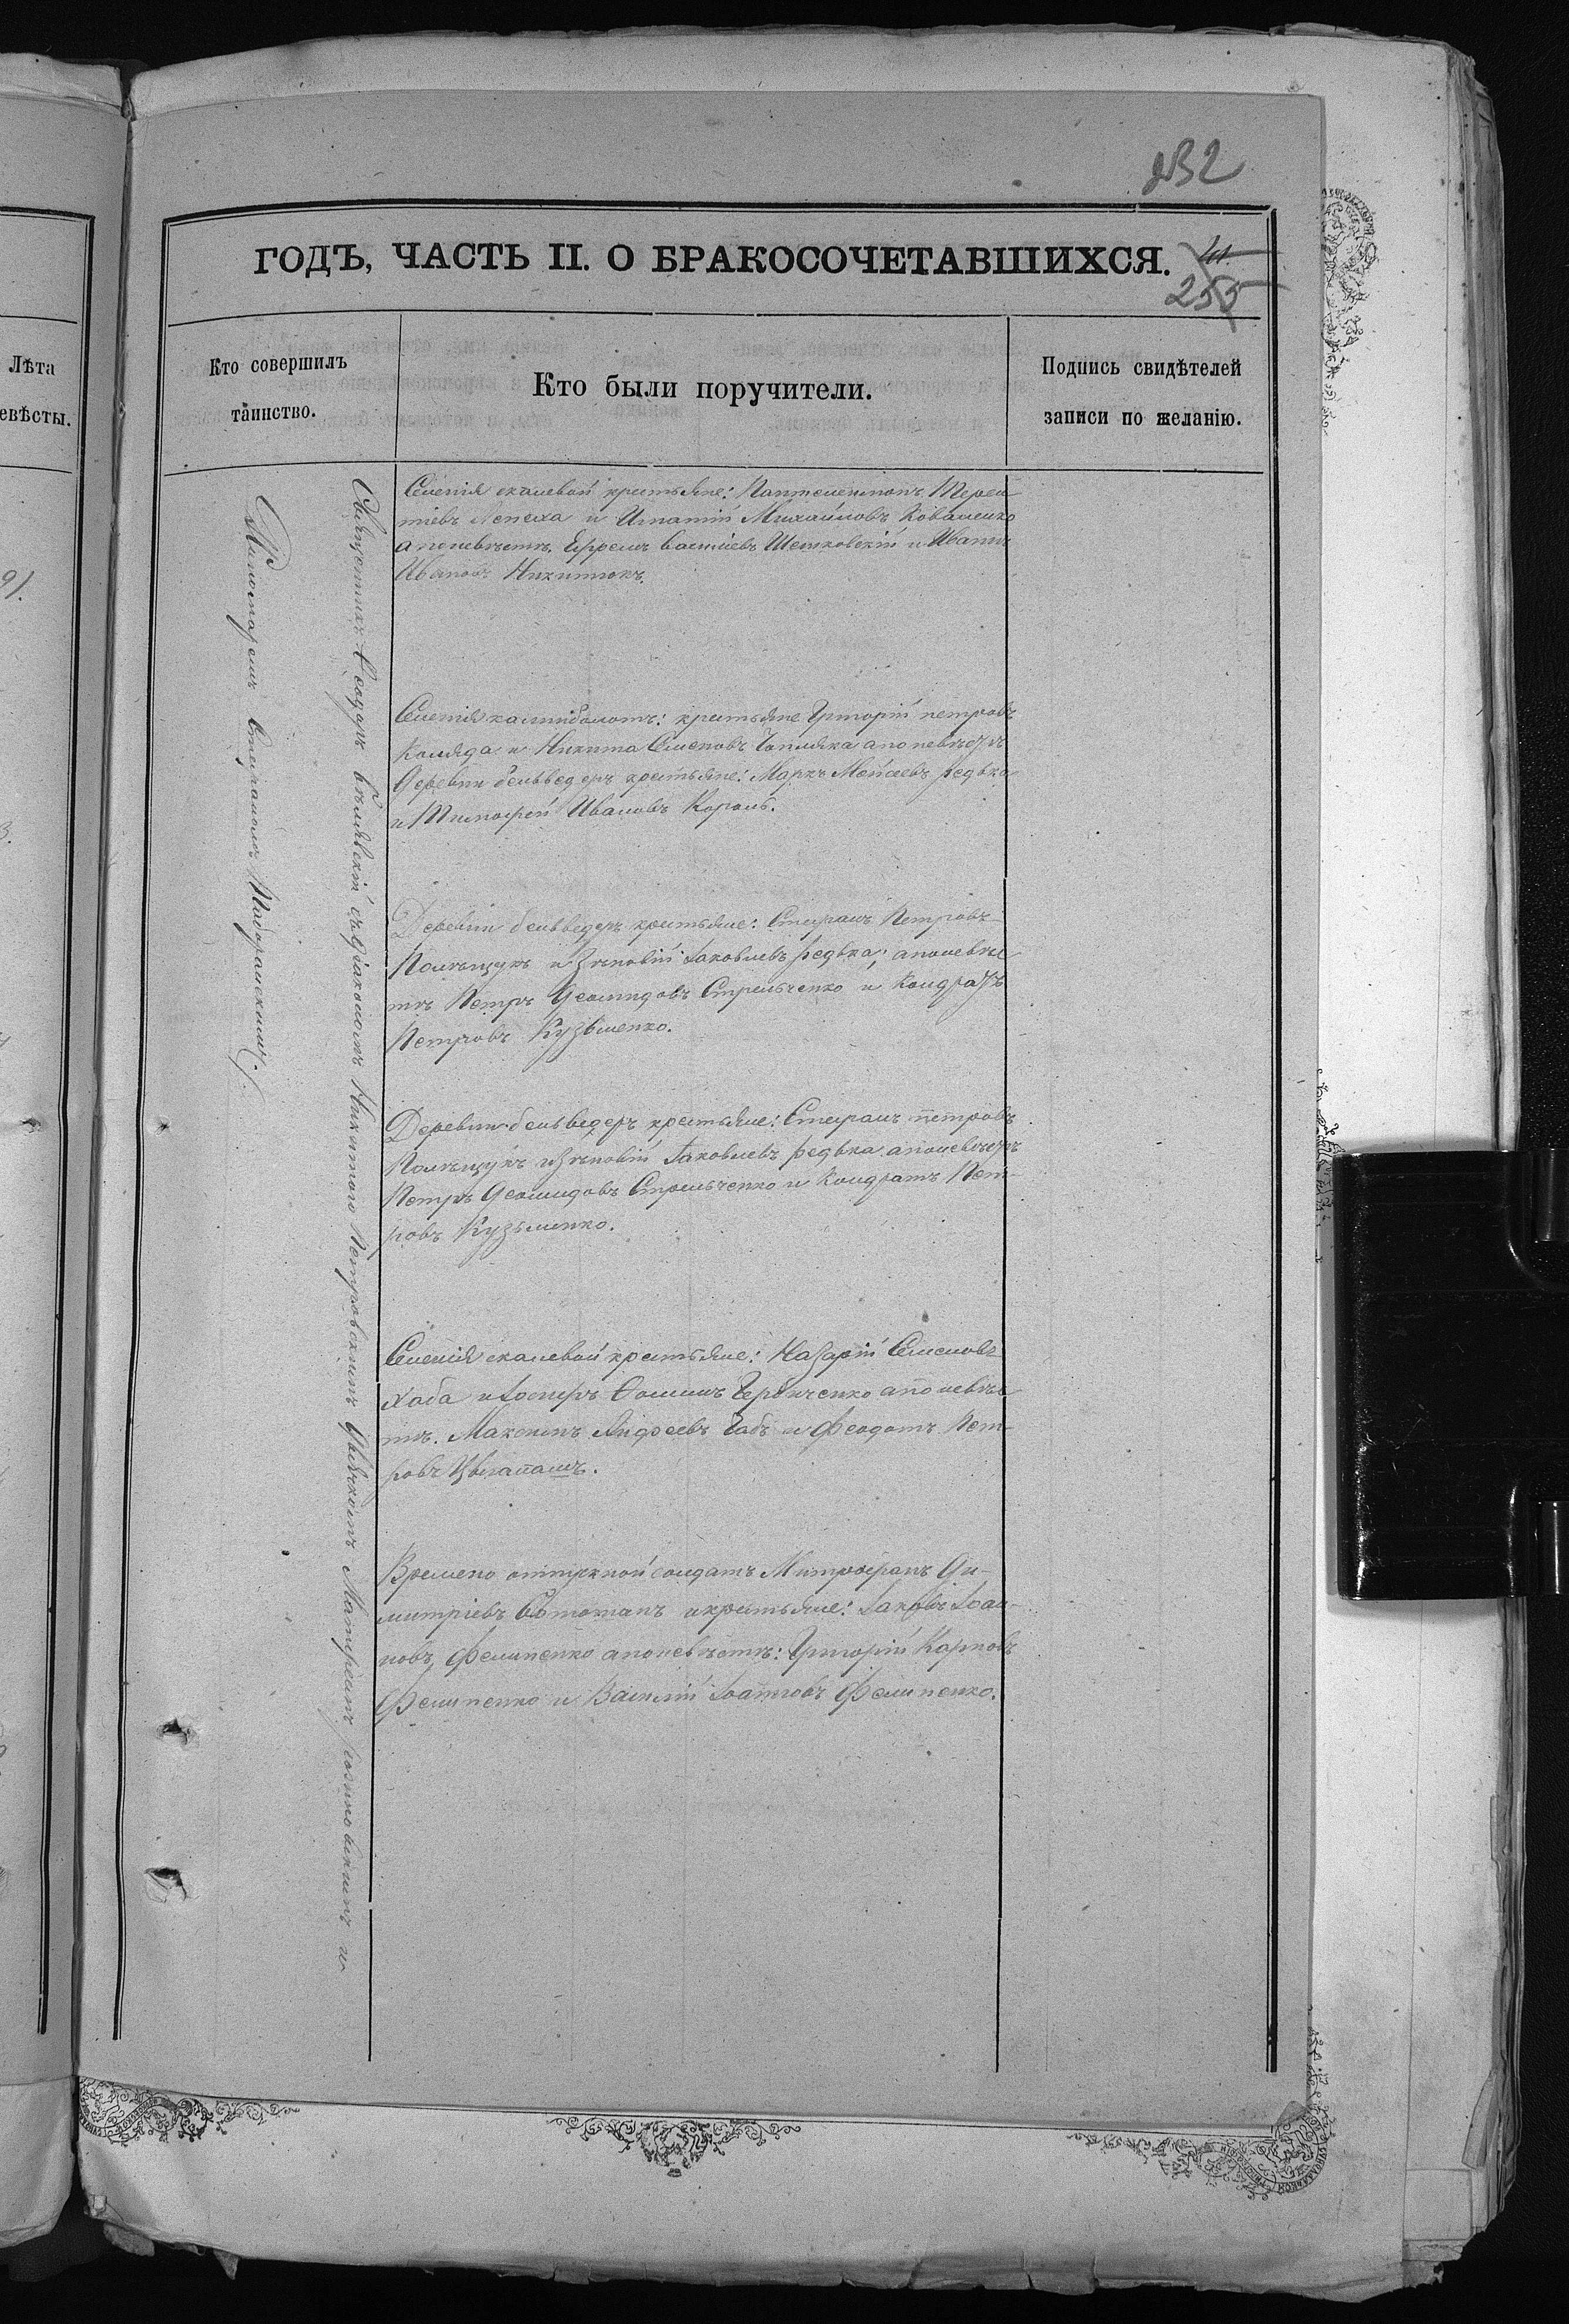 232
ГОДЪ, ЧАСТЬ II. О БРАКОСОЧЕТАВШИХСЯ.
255
Лѣта
евѣсты.
Кто совершилъ
таинство.
Кто были поручители.
Подпись свидѣтелей
записи по желанію.
Священникъ Ѳеодоръ съ діакономъ Никитою Петровскимъ Дьячкомъ и
Пономаремъ Стефаномъ Таборанскимъ.
Селенія скалевой крестьяне: Пантелеимонъ Терен-
тіевъ Лепеха и Игнатій Михайловъ Коваленко
а поневѣстѣ. Ефремъ Шетковскій и Иванъ
Ивановъ Никитюкъ.
Селенія калниболотъ: крестьяне Григорій петровъ
Коляда и Никита Семеновъ а поневѣстѣ
Деревни бельведеръ крестьяне: Маркъ Моисеевъ редька
и Тимофей Ивановъ Король.
Деревни бельведеръ крестьяне: Стефанъ Петровъ
Полѣщукъ и Зѣновій Іаковлевъ редька; апоневѣс
тѣ Петръ Деомидовъ Стрельченко и Кондратъ
Петровъ Кузьменко.
Деревни бельведеръ крестьяне: Стефанъ петровъ
Полѣщукъ и Зѣновій Іаковлевъ редька апоневѣстѣ
Петръ Деомидовъ Стрельченко и Кондратъ Пет-
ровъ Кузьменко.
Селенія скалевой крестьяне: Назарій Семеновъ
Хаба и Іосифъ Ѳоминъ апоневѣс
тѣ. Максимъ Андреевъ и Феодотъ Пет-
ровъ
Времено отпускной солдатъ Митрофанъ Ди-
митріевъ и крестьяне: Іаковъ Іоан-
новъ Фелипенко апоневѣстѣ: Григорій Карповъ
Фелипенко и Василій Іоанновъ Фелипенко.